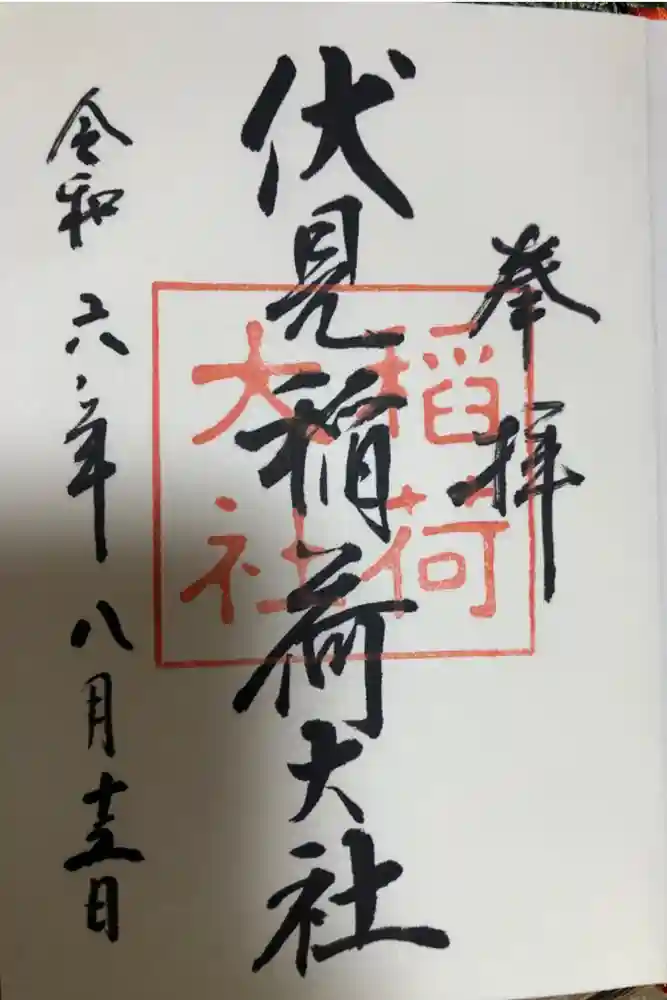 奉拝
伏見稲荷大社
稲荷
大社
令和六年八月十五日